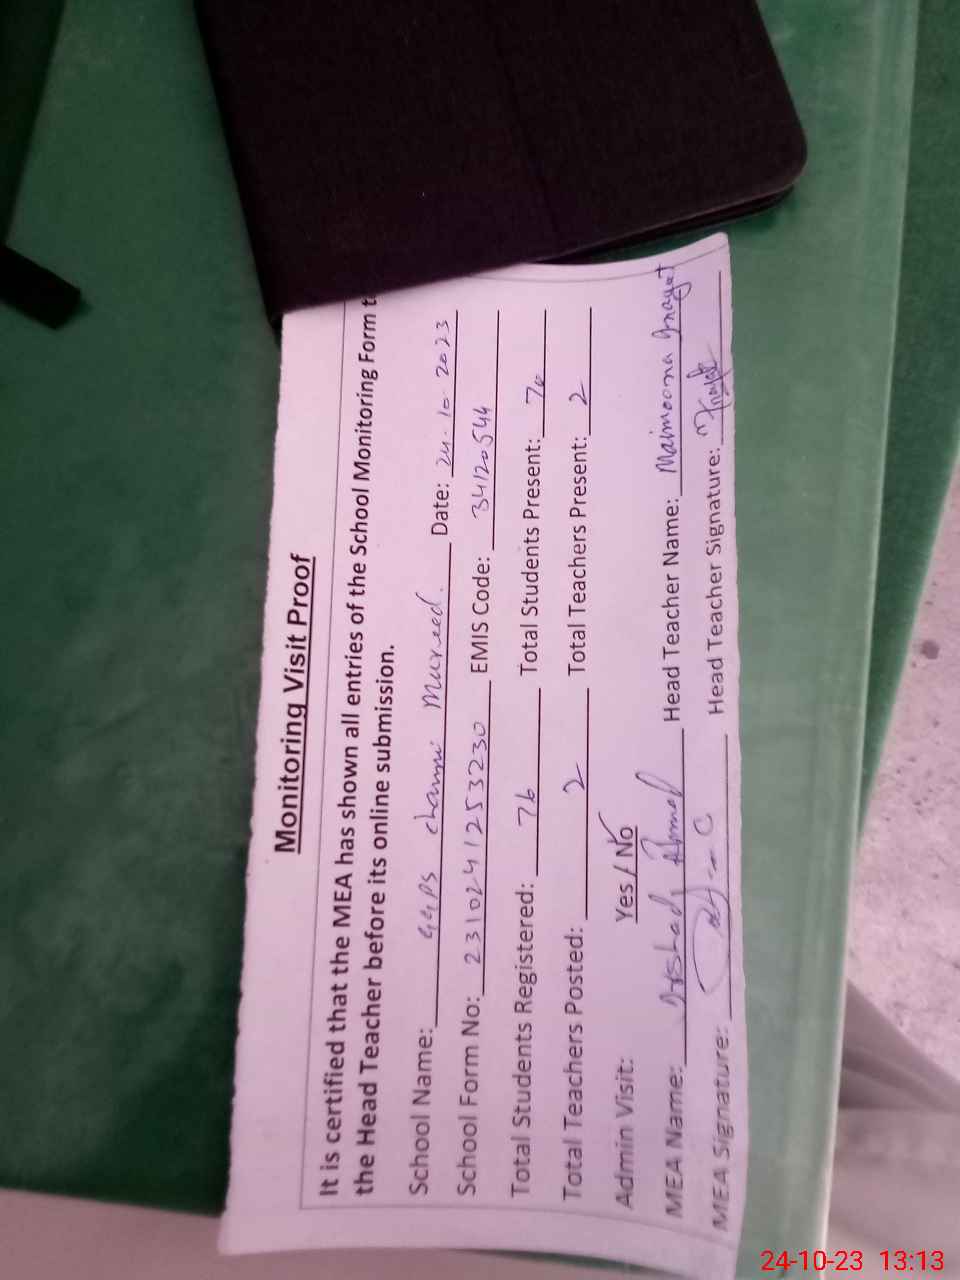 Monitoring Visit Proof
It is certified that the MEA has shown all entries of the School Monitoring Form t
the Head Teacher before its online submission.
School Name: GGPS Channi Mureed. Date: 24-10-2023
School Form No: 2310241253230 EMIS Code: 34120544
Total Students Registered: 76 Total Students Present:
Total Teachers Posted: 2 Total Teachers Present: 2
Admin Visit: Yes / No
MEA Name: Irshad Ahmed Head Teacher Name: Maimoona Inayat
MEA Signature: Head Teacher Signature: Inayat
24-10-23 13:13